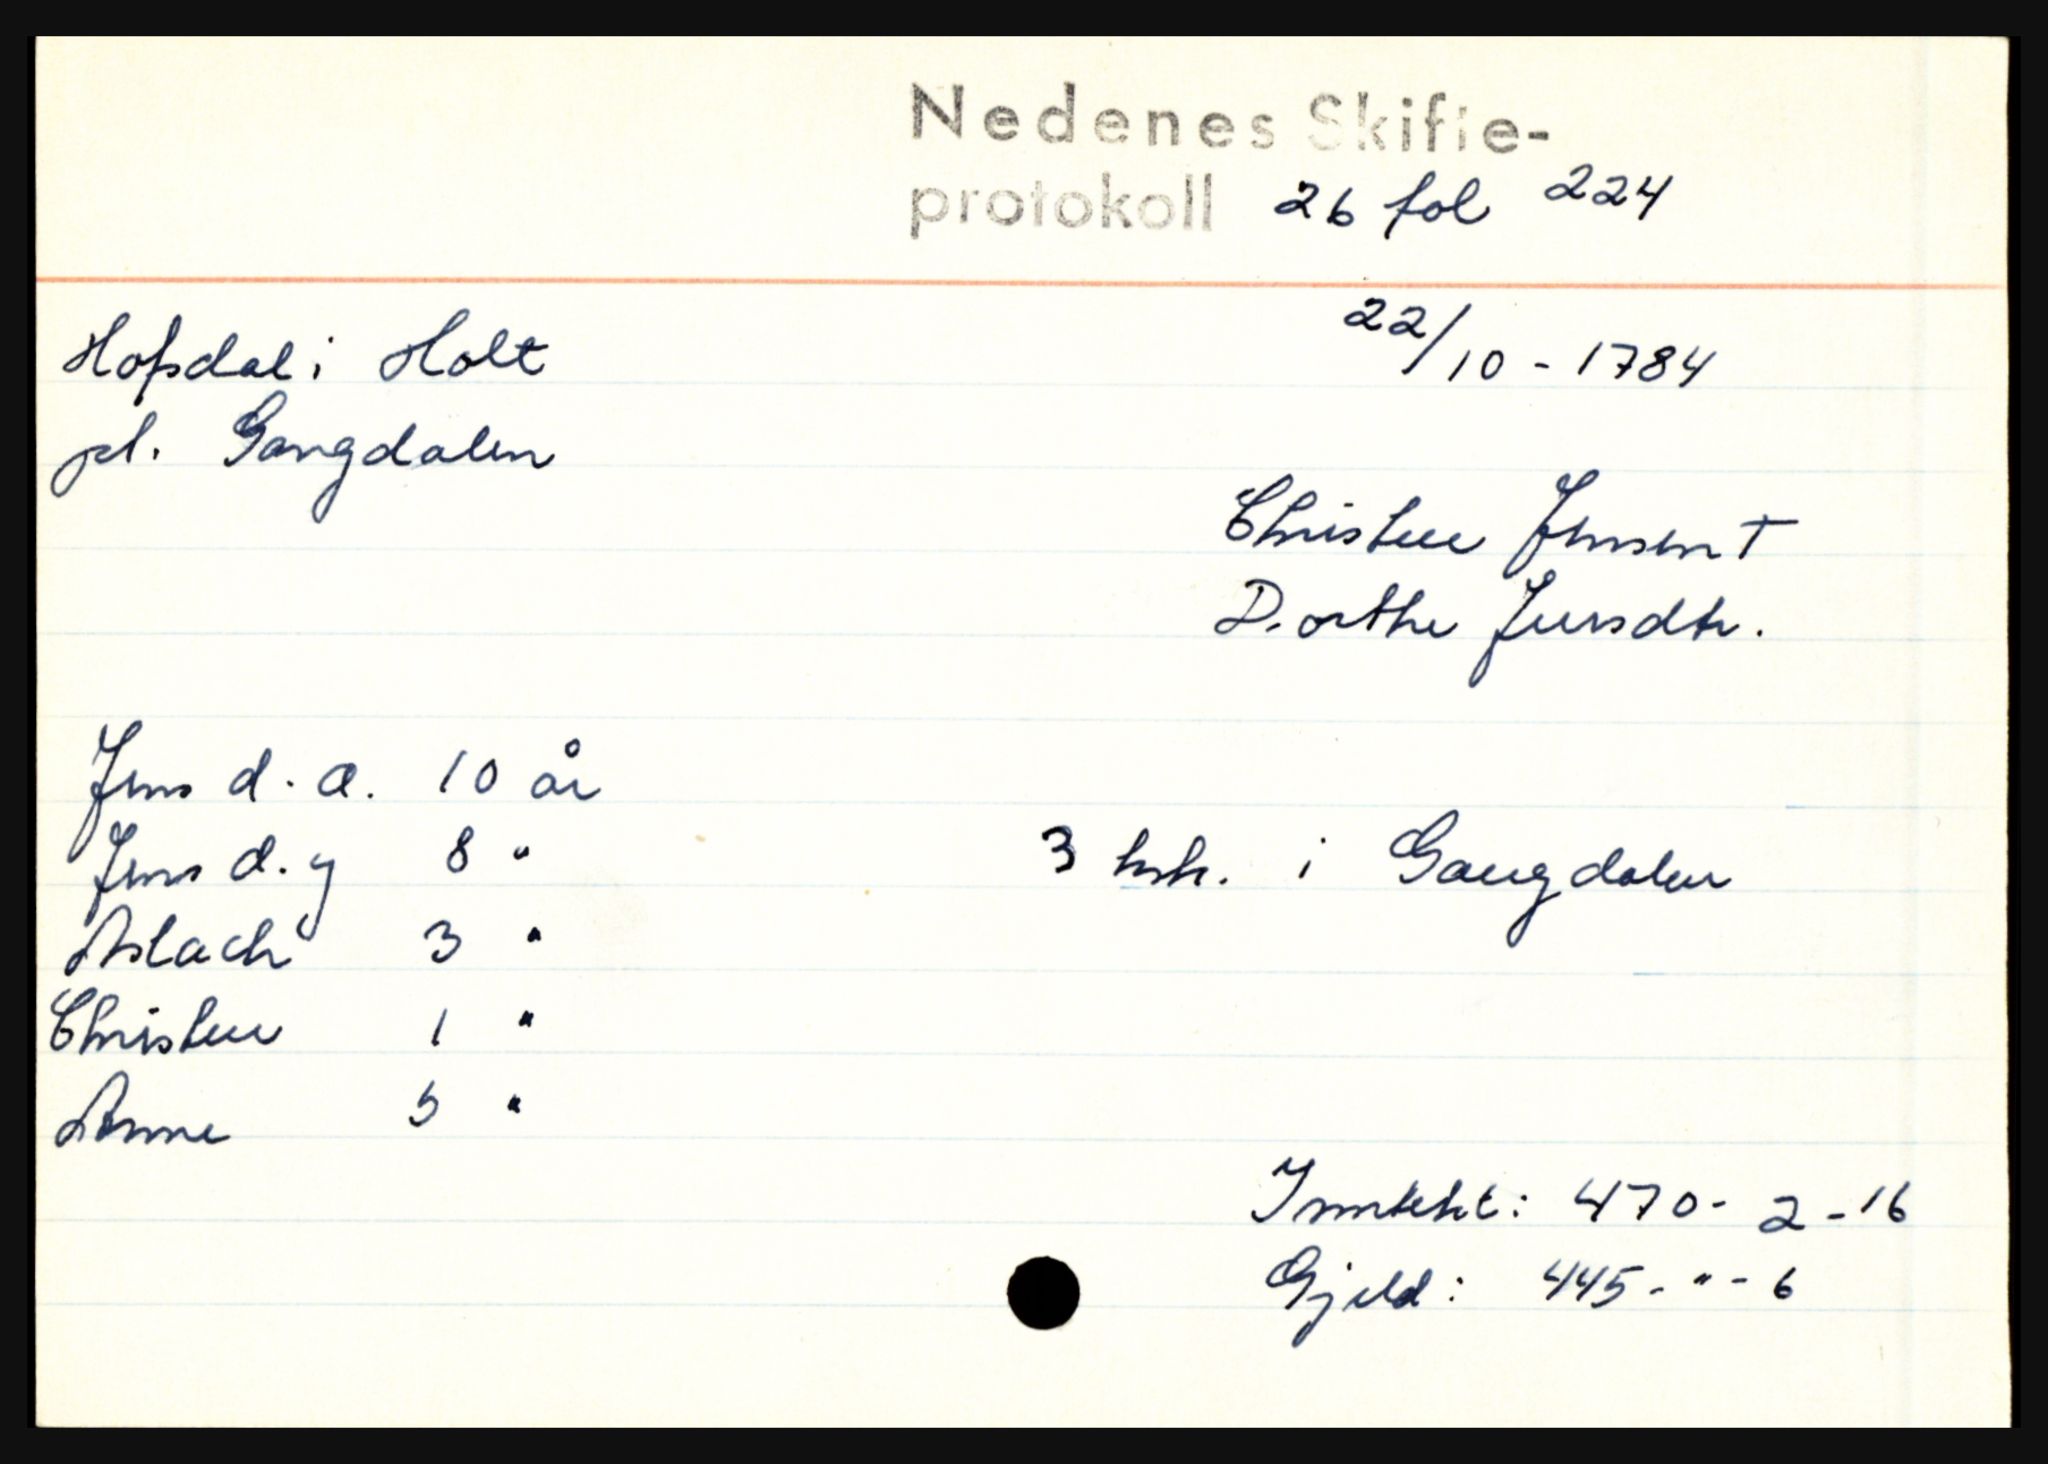 Nedenes Skifte-
protokoll 26 fol 224
Hofsdal i Holt
22/10 - 1784
pl. Gangdalen
Christen Jensen †
Dorthe Jensdtr.
Jens d. æ. 10 år
Jens d. y 8 "
3 hsh. i Gangdalen
Aslach 3 "
Christen 1 "
Anne 5 "
Inntekt: 470 - 2 - 16
Gjeld: 445 - " - 6